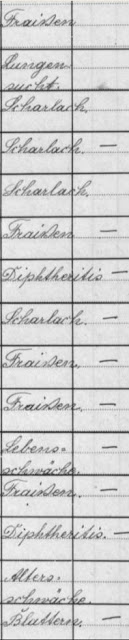 Fraißen
Lungen
sucht.
Scharlach.
Scharlach. —
Scharlach.
Fraißen —
Diphtheritis —
Scharlach. —
Fraißen. —
Fraißen. —
Lebens= —
schwäche.
Fraißen. —
Diphtheritis. —
Alters=
schwäche.
Blattern. —